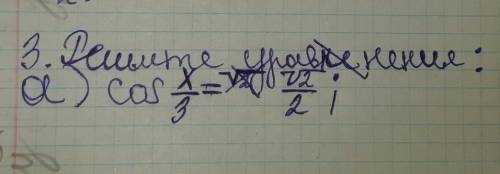 3. Решите уравнение:
a) cos x/3 = √2/2;